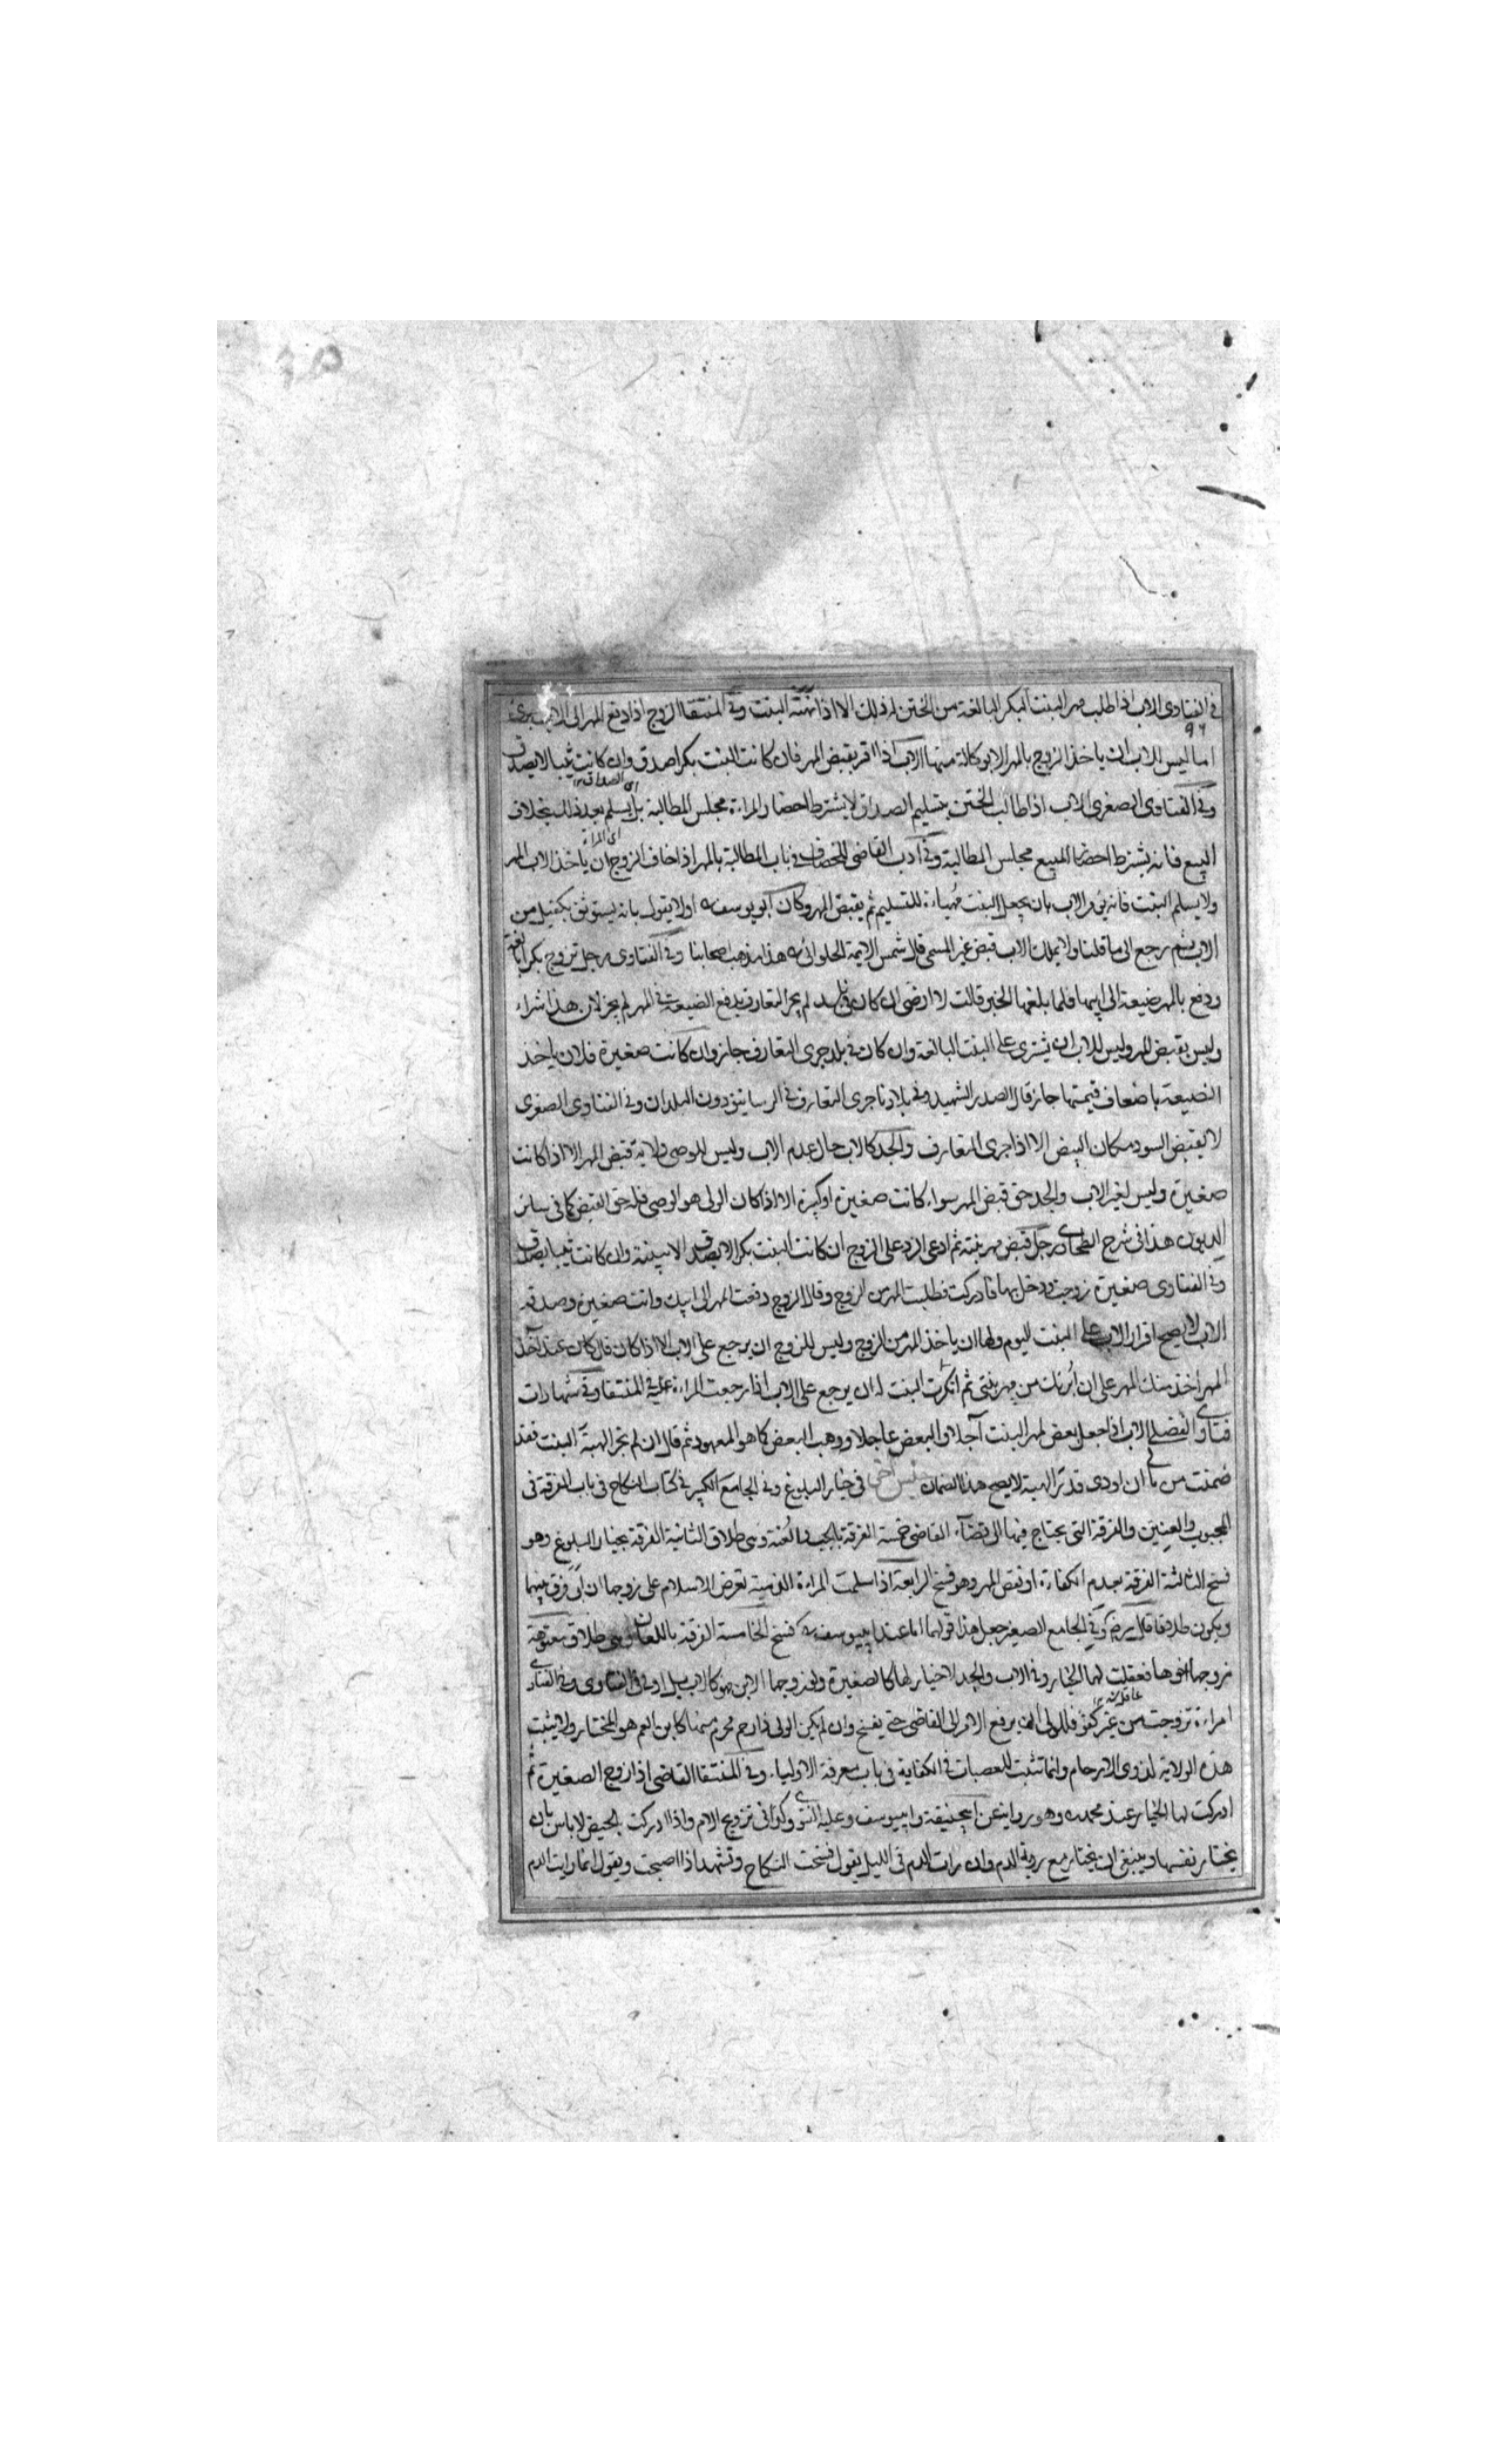 في الفتاوى الاب اذا طلب مهر البنت البكر البالغة من الختن له ذلك الا اذا نهته البنت وفي المنتقا الزوج اذا دفع المهر الى الاب برئ
٩٦
اما ليس للاب ان ياخذ الزوج بالمهر الا بوكالة منها الاب اذا اقر بقبض المهر فان كانت البنت بكرا صدق وان كانت ثيبا لا يصدق
اى الصداق
وفي الفتاوى الصغرى الاب اذا طالب الختن بتسليم الصداق لا يشترط احضار المراة مجلس المطالبة بل يسلم بعد ذلك بخلاف
اى المراة
البيع فانه يشترط احضار المبيع مجلس المطالبة وفي آدب القاضى للخصاف في باب المطالبة بالمهر اذا خاف الزوج ان ياخذ الاب المهر
ولا يسلم البنت فانه يؤمر الاب بان يجعل البنت مهياءة للتسليم ثم يقبض المهر وكان ابو يوسف اولا يقول بانه يستوثق بكفيل من
الاب ثم رجع الى ما قلنا ولا يملك الاب قبض غير المسمى قال شمس الايمة الحلوائى هذا مذهب اصحابنا وفي الفتاوى رجل تزوج بكرا بالغة
ودفع بالمهر ضيعة الى ابيها فلما بلغها الخبر قالت لا ارضى ان كان في بلد لم يجر التعارف بدفع الضيعة في المهر لم يجز لان هذا شراء
وليس بقبض المهر وليس للاب ان يشترى على البنت البالغة وان كان في بلد جرى التعارف جاز وان كانت صغيرة فلان ياخذ
الضيعة باضعاف قيمتها جاز قال الصدر الشهيد وفي بلادنا جرى التعارف في الرساتيق دون البلدان وفي الفتاوى الصغرى
لا يقبض السود مكان البيض الا اذا جرى التعارف والجد كالاب حال عدم الاب وليس للوصى ولاية قبض المهر الا اذا كانت
صغيرة وليس لغير الاب والجد حق قبض المهر سواء كانت صغيرة او كبيرة الا اذا كان الولى هو الوصى فله حق القبض كما في سائر
الديون هذا في شرح الطحاوى رجل قبض مهر بنته ثم ادعى الرد على الزوج ان كانت البنت بكرا لا يصدق الا ببينة وان كانت ثيبا يصدق
وفي الفتاوى صغيرة زوجت ودخل بها فادركت فطلبت المهر من الزوج وقال الزوج دفعت المهر الى ابيك وانت صغيرة وصدقه
الاب لا يصح اقرار الاب على البنت اليوم ولها ان ياخذ المهر من الزوج وليس للزوج ان يرجع على الاب الا اذا كان قال كان عند اخذ
المهر اخذ منك المهر على ان ابرئك من مهر بنتى ثم انكرت البنت له ان يرجع على الاب اذا رجعت المراة عليه في المنتقا وفي شهادات
فتاوى الفضلى الاب اذا جعل بعض المهر البنت آجلا والبعض عاجلا ووهب البعض كما هو المعهود ثم قال ان لم تجز الهبة البنت فقد
ضمنت من مالى ان اودى قدر الهبة لا يصح هذا الضمان في خيار البلوغ وفي الجامع الكبير في كتاب النكاح في باب الفرقة في
المجبوب والعنين والفرقة التى يحتاج فيها الى قضاء القاضى خمسة الفرقة بالجب والعنة وهى طلاق الثانية الفرقة بخيار البلوغ وهو
فسخ الثالثة الفرقة بعدم الكفاءة او نقض المهر وهو فسخ الرابعة اذا اسلمت المراة الذمية تعرض الاسلام على زوجها ان ابى فرق بينهما
ويكون طلاقا قال وفي الجامع الصغير جعل هذا قولهما اما عند ابيوسف فسخ الخامسة الفرقة باللعان وهى طلاق معتوهة
زوجها اخوها فعقلت لها الخيار وفي الاب والجد لا خيار لها كالصغيرة ولو زوجها الابن فهو كالاب بل اولى في الفتاوى وفي الفتاوى
عاقلة
امراة تزوجت من غير كفو فللولى ان يرفع الامر الى القاضى حتى يفسخ وان لم يكن الولى ذا رحم محرم منها كابن العم هو المختار ولا يثبت
هذه الولاية لذوى الارحام وانما تثبت للعصبات في الكفاية في باب معرفة الاولياء وفي المنتقا القاضى اذا زوج الصغيرة ثم
ادركت لها الخيار عند محمد وهو رواية عن ابيحنيفة وابيوسف وعليه الفتوى وكذا في تزويج الام واذا ادركت بالحيض لا باس بان
يختار نفسها وينبغى ان يختار مع روية الدم وان رات الدم في الليل يقول فسخت النكاح وتشهد اذا اصبحت ويقول انما رايت الدم